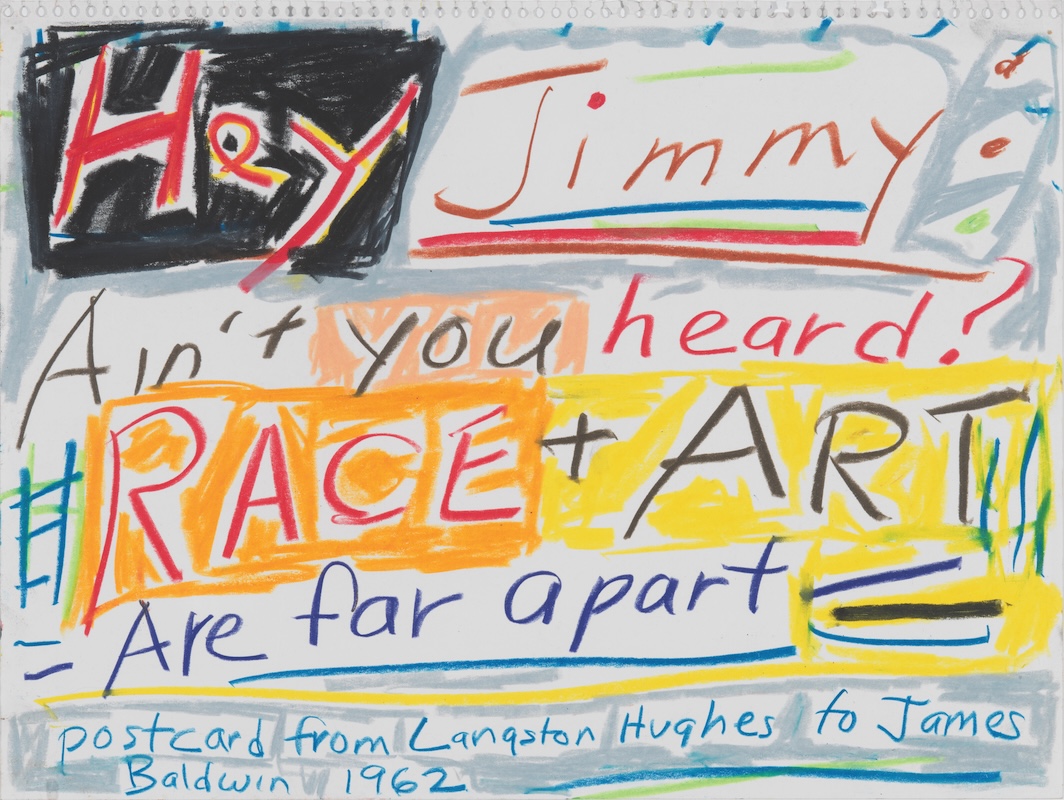 Hey Jimmy
Ain't you heard?
RACE + ART
Are far apart
postcard from Langston Hughes to James
Baldwin 1962